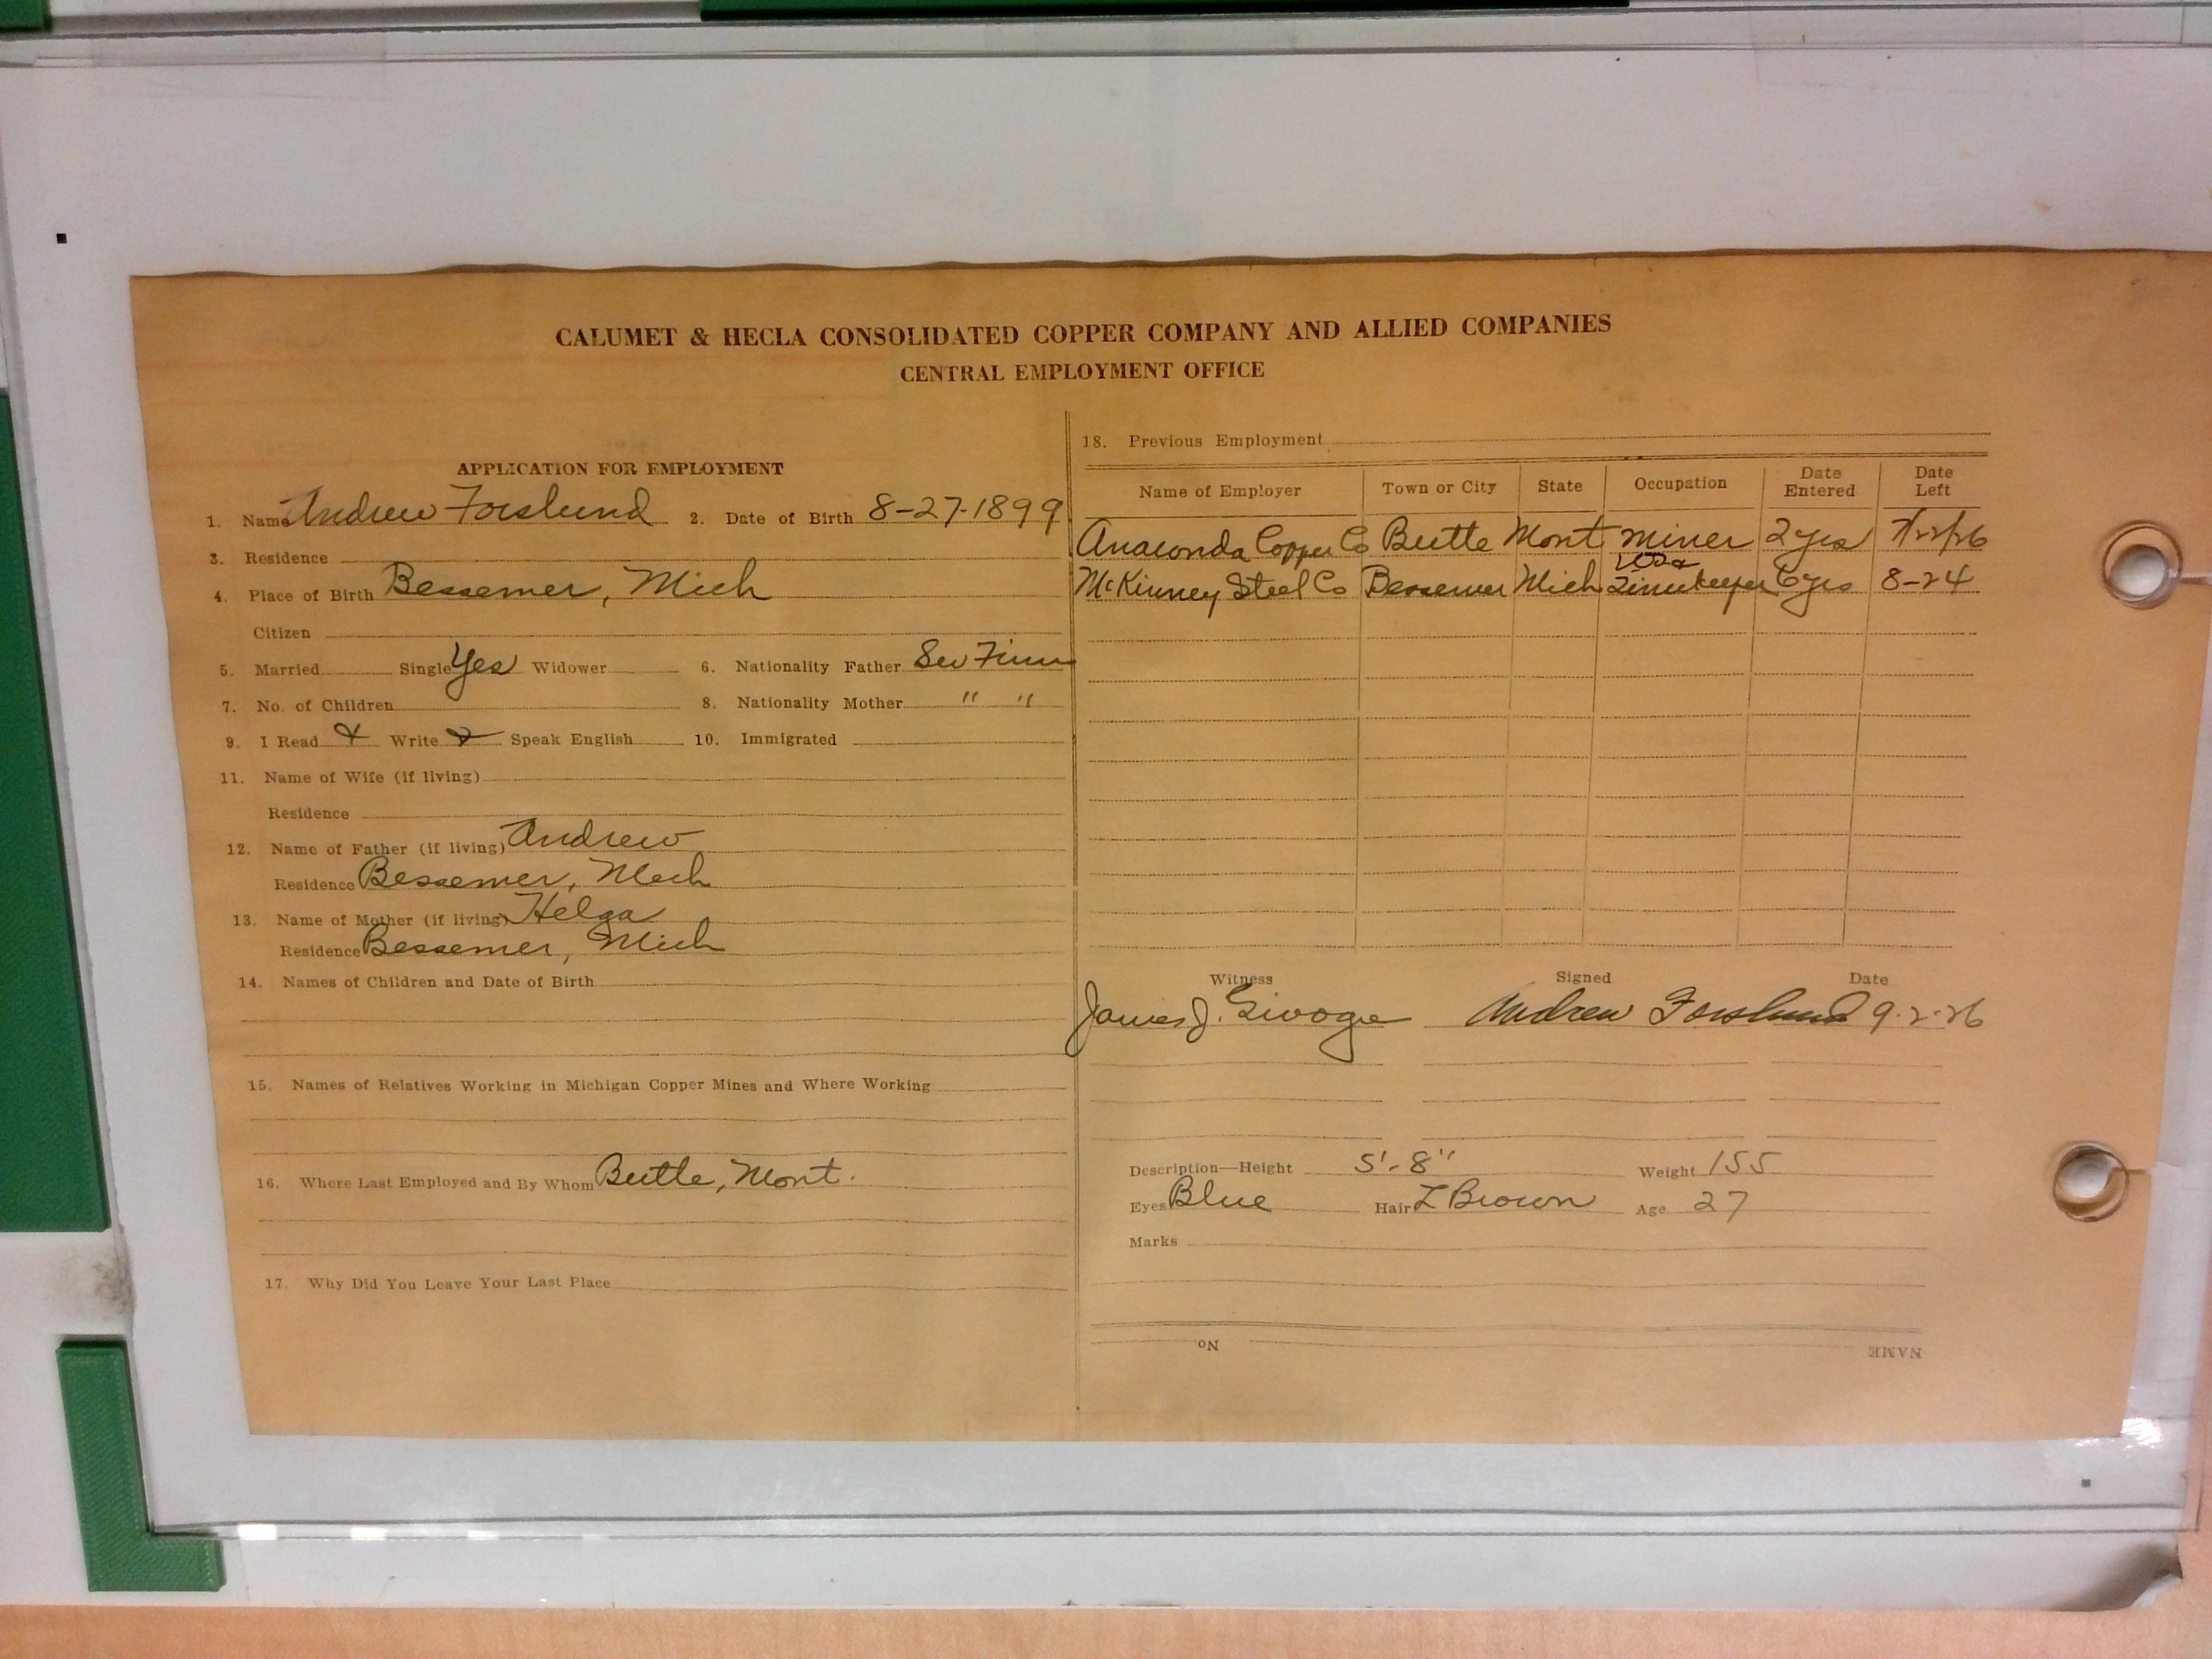 CALUMET & HECLA CONSOLIDATED COPPER COMPANY AND ALLIED COMPANIES
CENTRAL EMPLOYMENT OFFICE
APPLICATION FOR EMPLOYMENT
1. Name Andrew Forslund 2. Date of Birth 8-27-1899
3. Residence
4. Place of Birth Bessemer, Mich
Citizen
5. Married Single Yes Widower 6. Nationality Father Sw Finn
7. No. of Children 8. Nationality Mother " "
9. I Read & Write & Speak English 10. Immigrated
11. Name of Wife (if living)
Residence
12. Name of Father (if living) Andrew
Residence Bessemer, Mich
13. Name of Mother (if living) Helga
Residence Bessemer, Mich
14. Names of Children and Date of Birth
15. Names of Relatives Working in Michigan Copper Mines and Where Working
16. Where Last Employed and By Whom Butte, Mont.
17. Why Did You Leave Your Last Place
18. Previous Employment
Name of Employer Town or City State Occupation Date Entered Date Left
Anaconda Copper Co Butte Mont miner 2 yrs 7/22/26
McKinney Steel Co Bessemer Mich Timekeeper 6 yrs 8-24
Witness Signed Date
James J. Andrew Forslund 9-2-26
Description—Height 5'-8" Weight 155
Eyes Blue Hair L Brown Age 27
Marks
No NAME